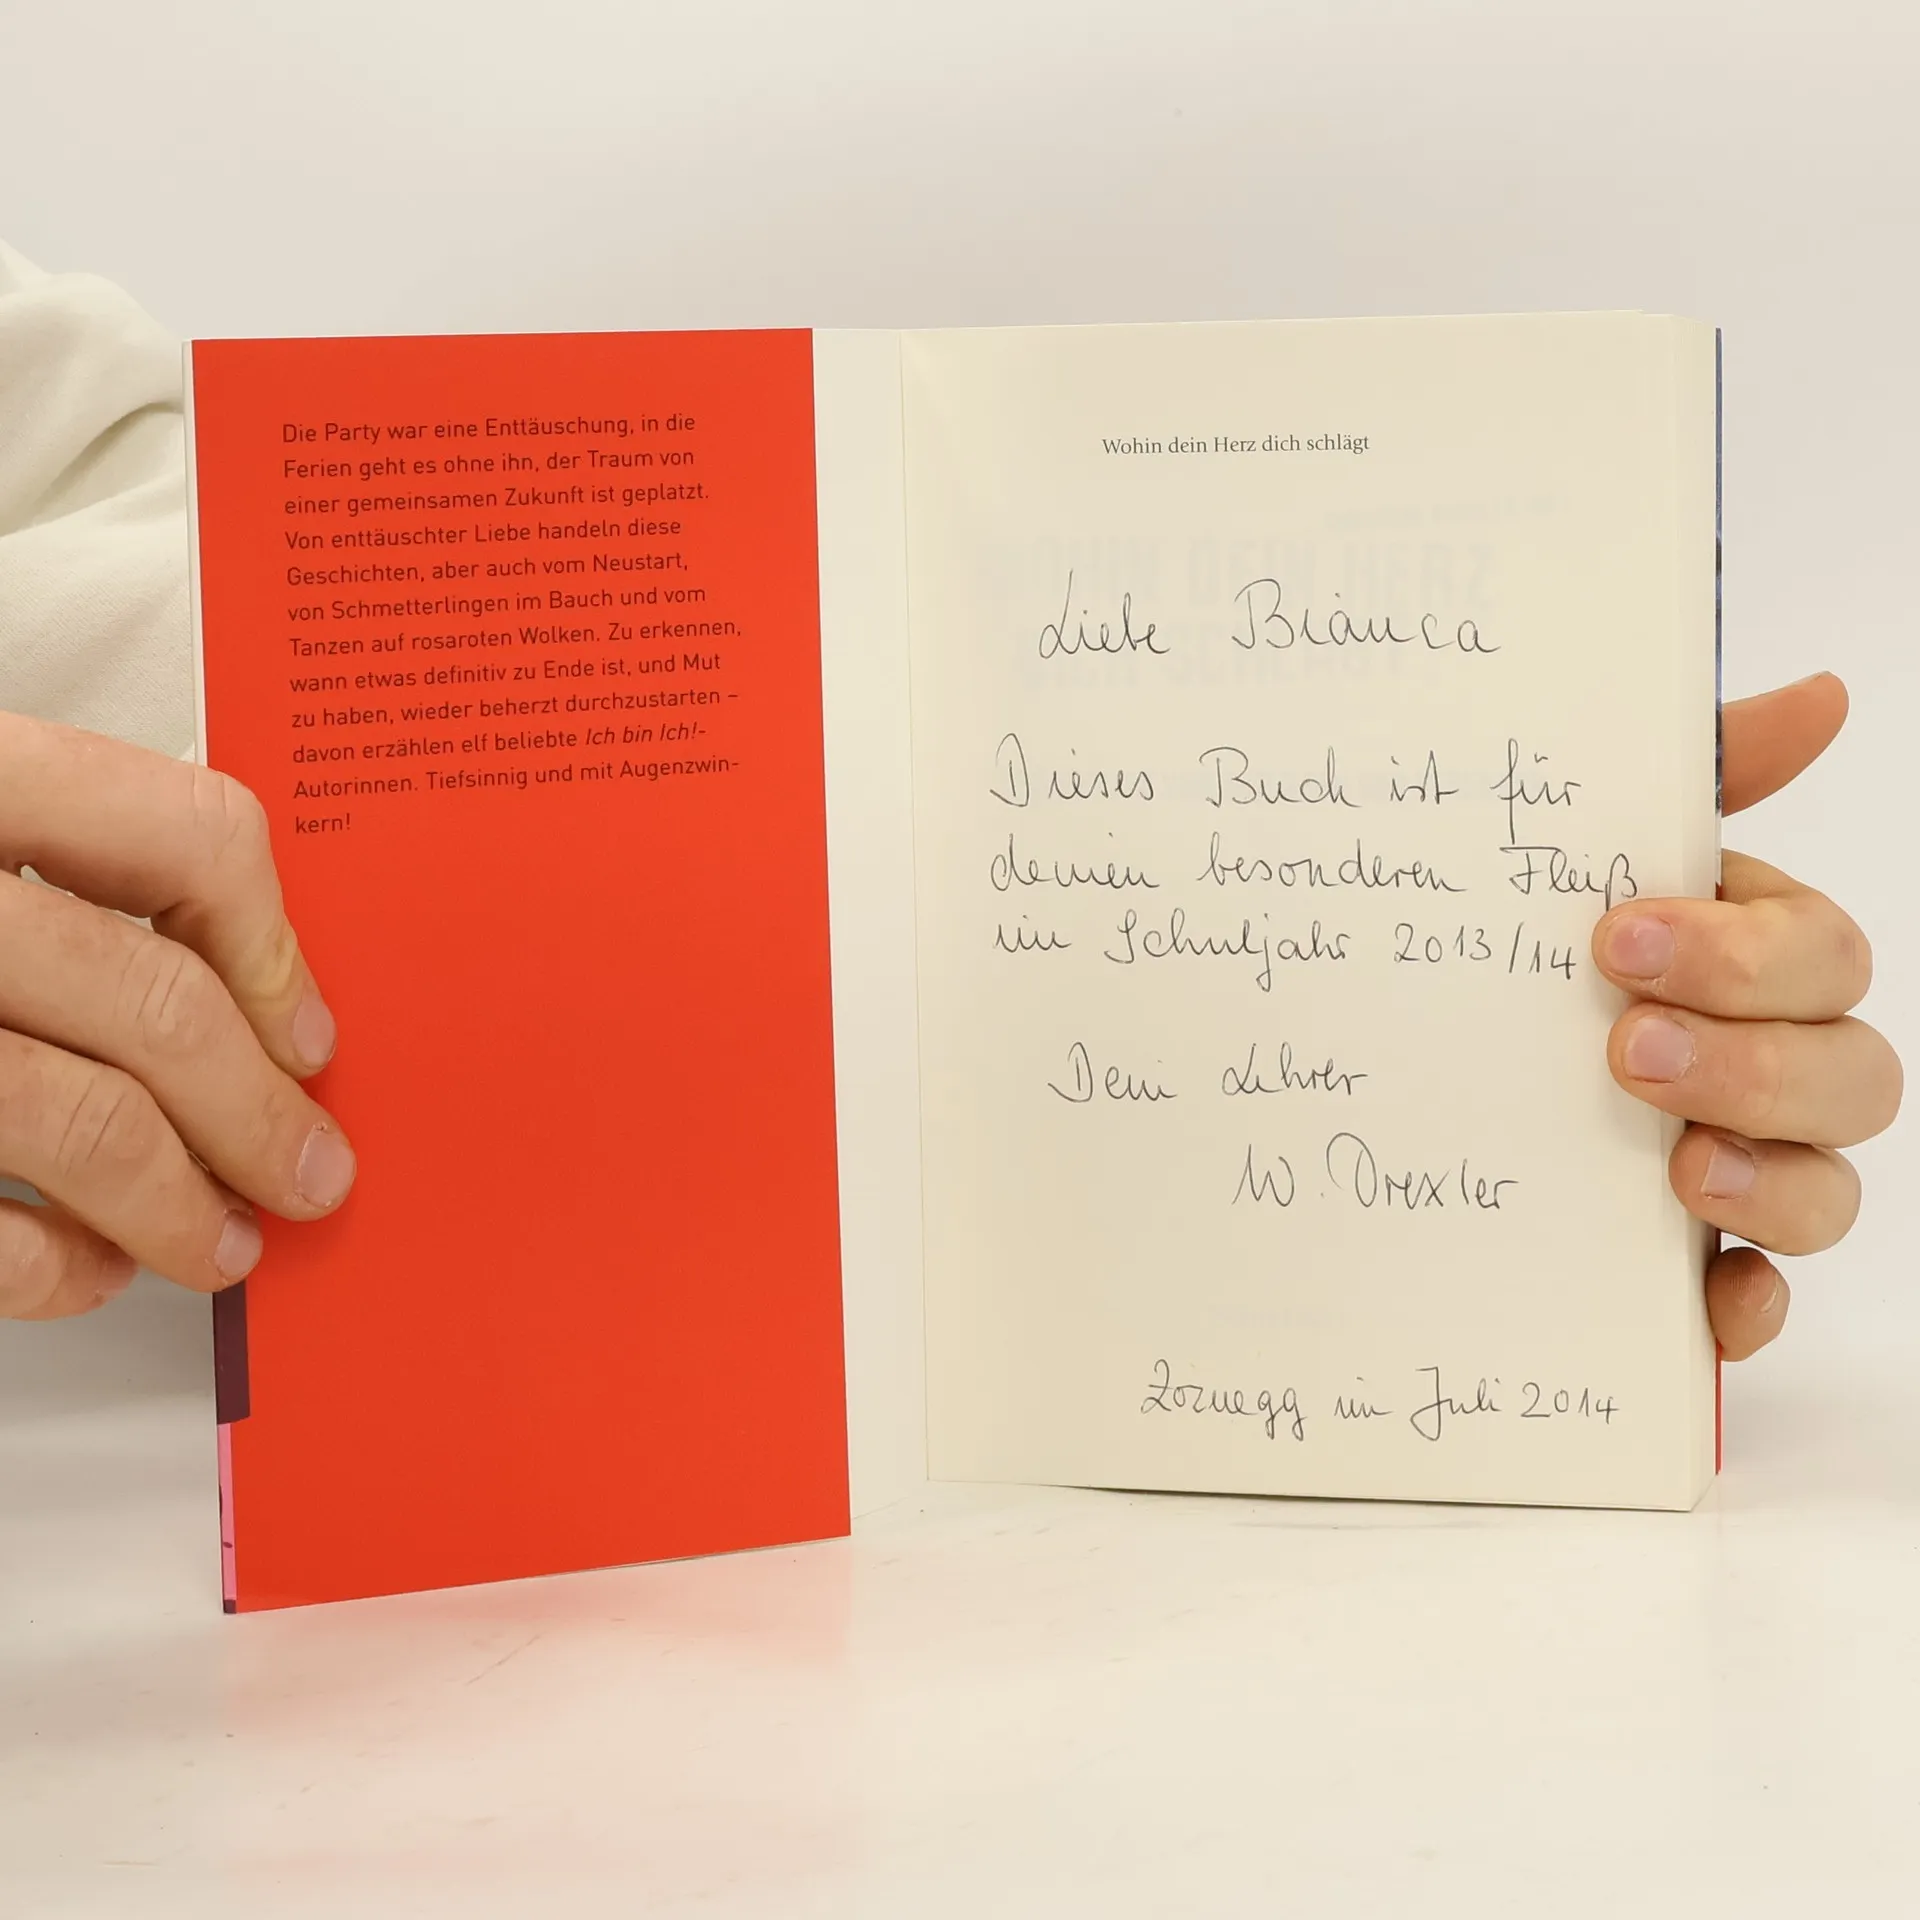 Die Party war eine Enttäuschung, in die
Ferien geht es ohne ihn, der Traum von
einer gemeinsamen Zukunft ist geplatzt.
Von enttäuschter Liebe handeln diese
Geschichten, aber auch vom Neustart,
von Schmetterlingen im Bauch und vom
Tanzen auf rosaroten Wolken. Zu erkennen,
wann etwas definitiv zu Ende ist, und Mut
zu haben, wieder beherzt durchzustarten –
davon erzählen elf beliebte Ich bin Ich!-
Autorinnen. Tiefsinnig und mit Augenzwin-
kern!
Wohin dein Herz dich schlägt
Liebe Bianca
Dieses Buch ist für
deinen besonderen Fleiß
im Schuljahr 2013/14
Dein Lehrer
W. Drexler
Zornegg im Juli 2014